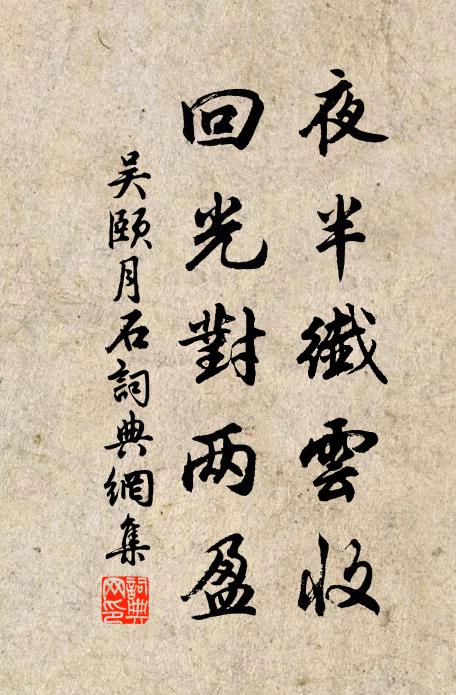 夜半纖雲收
回光對两盈
吴頤月石詞典網集
詞典网印